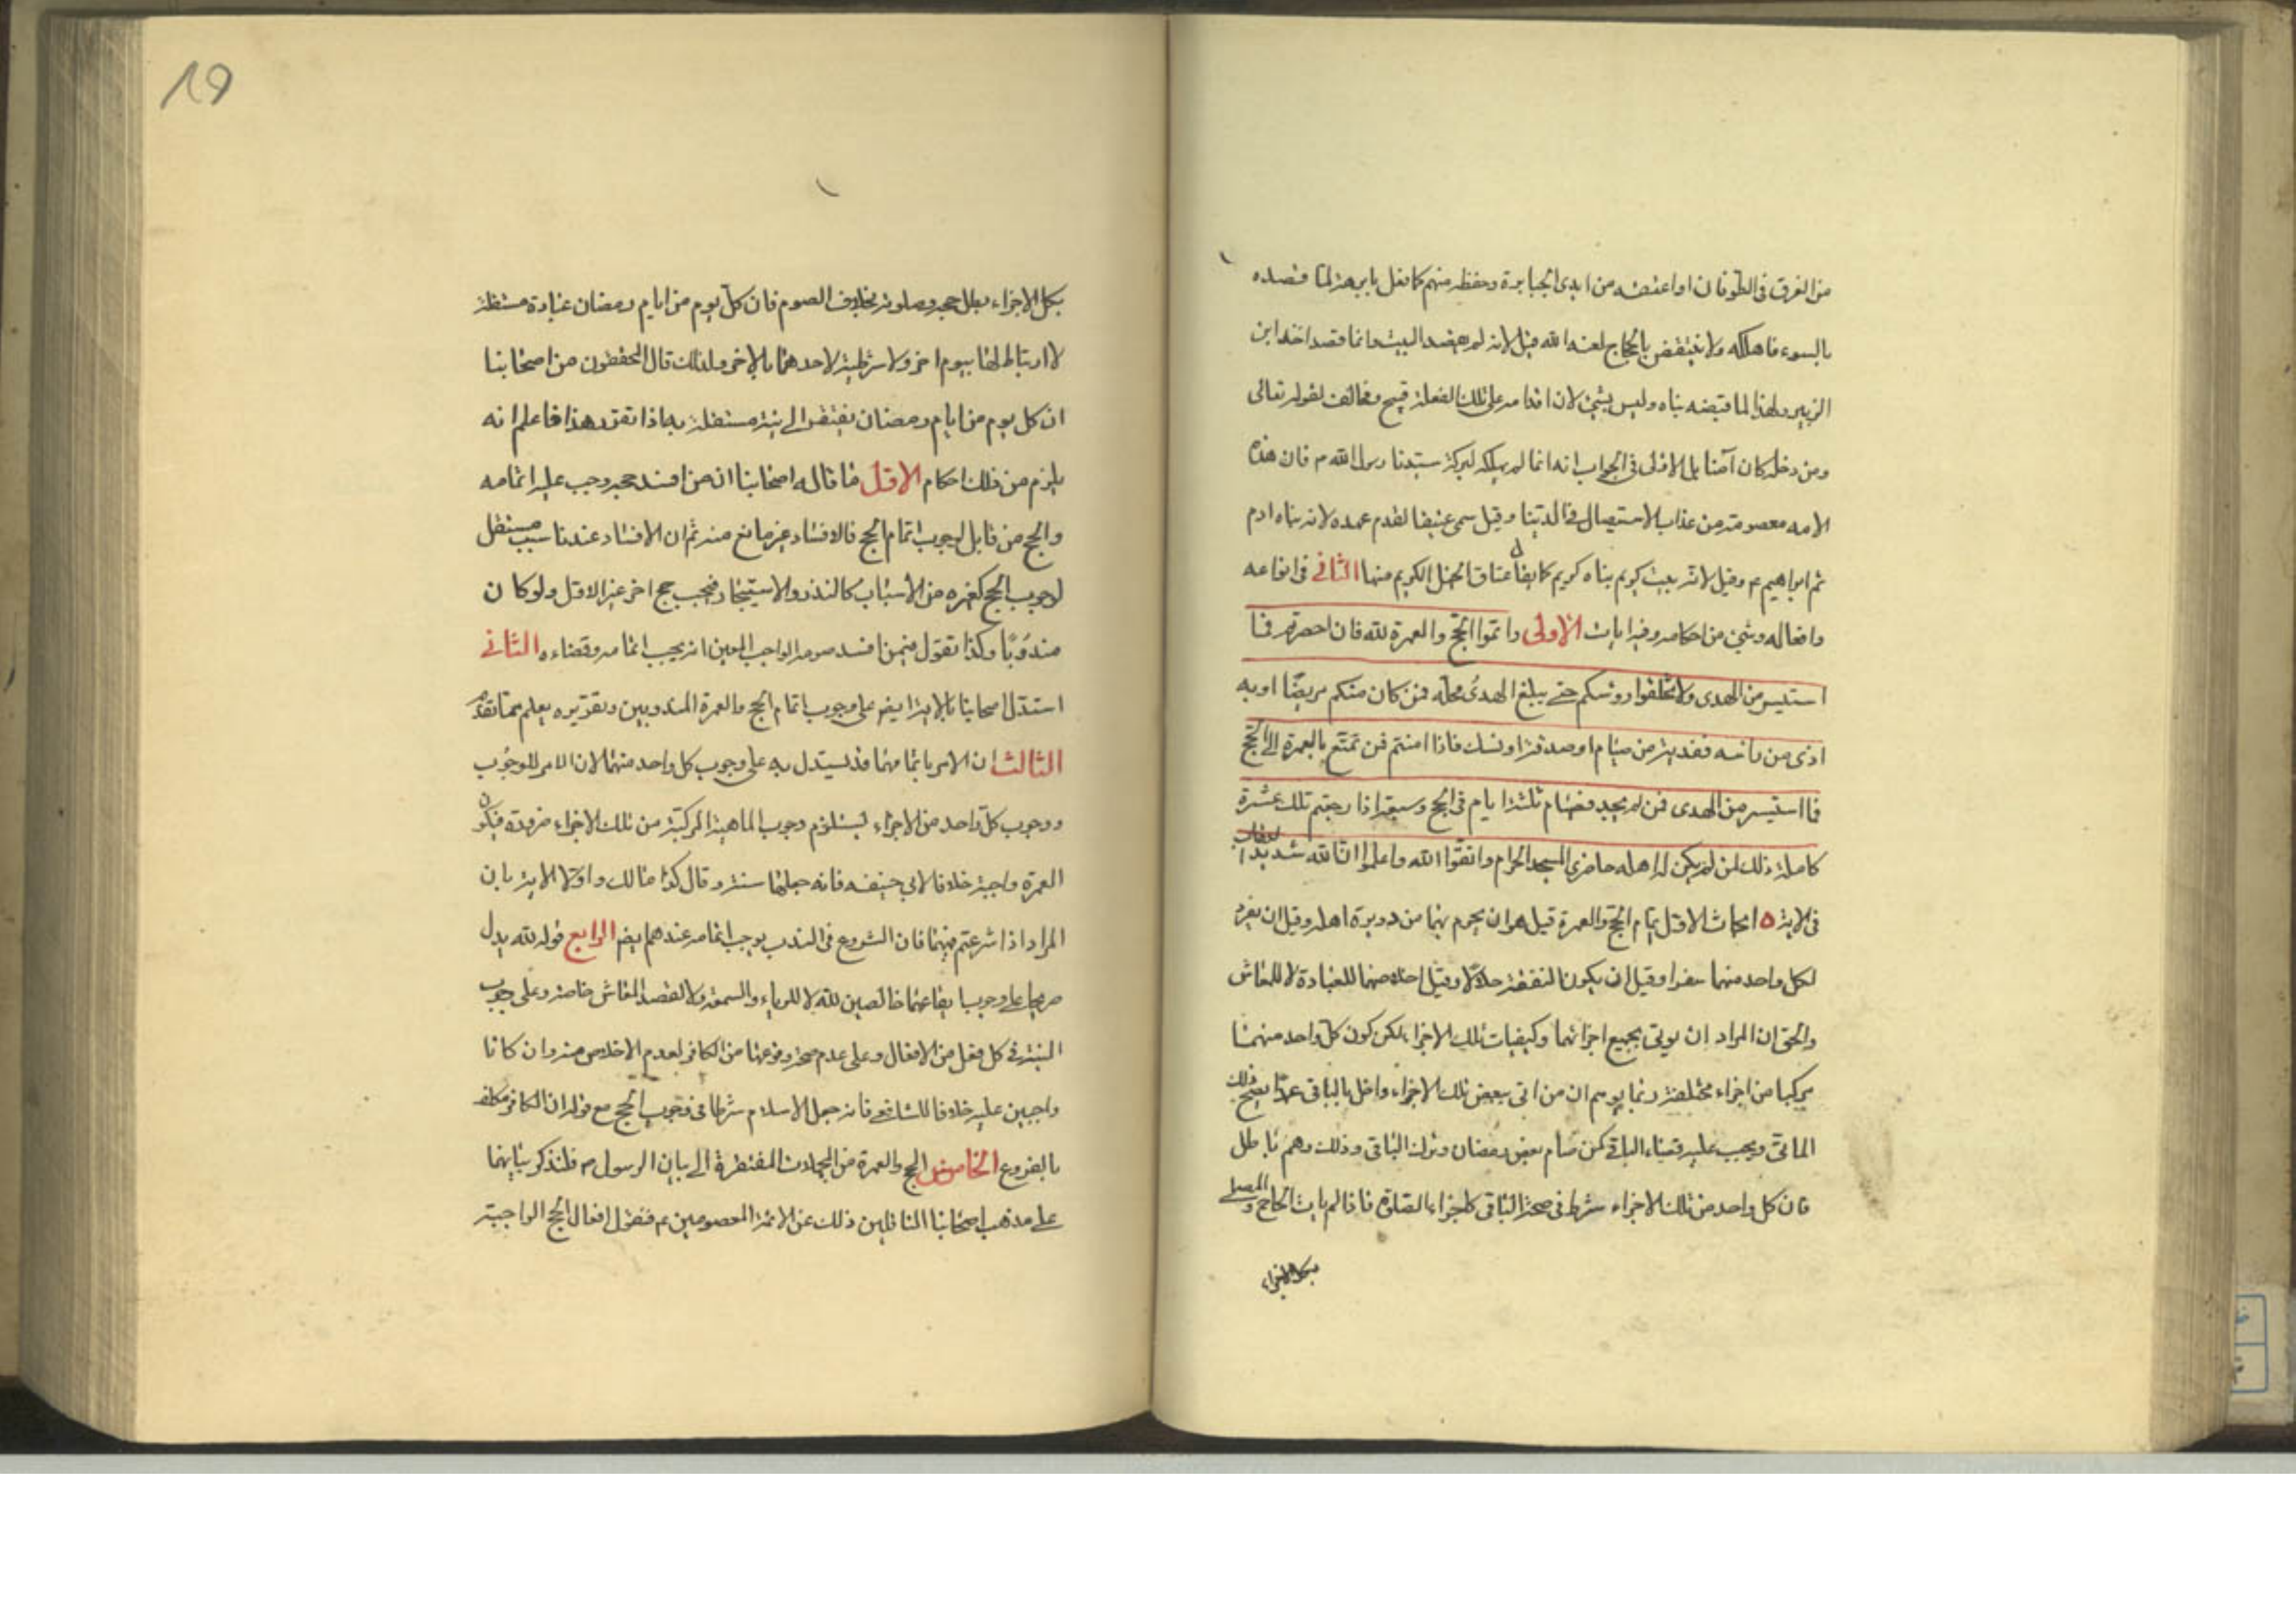 من الغرق فى الطوفان او اعتقه من ايدى الجبابرة وحفظه منهم كما فعل بابرهة لما قصده
بالسوء فاهلكه ولا ينتقض بالحجاج لعنه الله قيل لانه لم يقصد البيت وانما قصد اخذ ابن
الزبير ولهذا لما قبضه بناه وليس بشئ لان اقدامه على تلك الفعلة قبيح ومخالف لقوله تعالى
ومن دخله كان آمنا بل الاولى فى الجواب انه انما لم يهلكه لبركة سيدنا رسول الله ص فان هذه
الامه معصومة من عذاب الاستيصال فى الدنيا وقيل سمى عتيقا لقدم عهده لانه بناه ادم
ثم ابراهيم ع وقيل لانه بيت كريم بناه كريم كما يقال عتاق الخيل الكريم منها الثانى فى انواعه
وافعاله وشئ من احكامه وفيه ايات الاولى واتموا الحج والعمرة لله فان احصرتم فما
استيسر من الهدى ولا تحلقوا روسكم حتى يبلغ الهدى محله فمن كان منكم مريضا او به
اذى من راسه ففدية من صيام او صدقة او نسك فاذا امنتم فمن تمتع بالعمرة الى الحج
فما استيسر من الهدى فمن لم يجد فصيام ثلثة ايام فى الحج وسبعة اذا رجعتم تلك عشرة
كاملة ذلك لمن لم يكن اهله حاضرى المسجد الحرام واتقوا الله واعلموا ان الله شديد العقاب
فى الاية ٥ ابحاث الاول اتمام الحج والعمرة قيل هو ان يحرم بهما من دويرة اهله وقيل ان يفرد
لكل واحد منهما سفرا وقيل ان يكون النفقة حلالا وقيل اخلاصهما للعبادة لا للمعاش
والحق ان المراد ان يوتى بجميع اجزائهما وكيفيات تلك الاجزاء لكن كون كل واحد منهما
مركبا من اجزاء مختلفة ربما يوهم ان من اتى ببعض تلك الاجزاء واخل بالباقى عمدا يصح ذلك
الماتى ويجب عليه قضاء الباقى كمن صام بعض رمضان وترك الباقى وذلك وهم باطل
فان كل واحد من تلك الاجزاء شرط فى صحة الباقى كاجزاء الصلوة فاذا لم يات الحاج والمصلى
بكل الاجزاء
بكل الاجزاء بطل حجه وصلوته بخلاف الصوم فان كل يوم من ايام رمضان عبادة مستقلة
لا ارتباط لها بيوم اخر ولا شرطية لاحدهما بالاخر ولذلك قال المحققون من اصحابنا
ان كل يوم من ايام رمضان يفتقر الى نية مستقلة به اذا تقرر هذا فاعلم انه
يلزم من ذلك احكام الاول ما قاله اصحابنا ان من افسد حجه وجب عليه اتمامه
والحج من قابل لوجوب اتمام الحج فالافساد غير مانع منه ثم ان الافساد عندنا سبب مستقل
لوجوب الحج كغيره من الاسباب كالنذر والاستيجار فيجب حج اخر غير الاول ولو كان
مندوبا وكذا نقول فيمن افسد صومه الواجب المعين انه يجب اتمامه وقضاءه الثانى
استدل اصحابنا بالاية ايضا على وجوب اتمام الحج والعمرة المندوبين وتقريره يعلم مما تقدم
الثالث ان الامر باتمامهما قد يستدل به على وجوب كل واحد منهما لان الامر للوجوب
ووجوب كل واحد من الاجزاء يستلزم وجوب الماهية المركبة من تلك الاجزاء ضرورة فيكون
العمرة واجبة خلافا لابى حنيفه فانه جعلها سنة وقال كذا مالك واولا الاية بان
المراد اذا شرعتم فيهما فان الشروع فى الندب يوجب اتمامه عندهم ايضا الرابع قوله لله يدل
صريحا على وجوب ايقاعهما خالصين لله لا للرياء والسمعة ولا لقصد المعاش خاصة وعلى وجوب
النية فى كل فعل من الافعال وعلى عدم صحة وقوعهما من الكافر لعدم الاخلاص منه وان كانا
واجبين عليه خلافا للشافعى فانه جعل الاسلام شرطا فى وجوب الحج مع قوله ان الكافر مكلف
بالفروع الخامس الحج والعمرة من المجملات المفتقرة الى بيان الرسول ص فلنذكر بيانهما
على مذهب اصحابنا الناقلين ذلك عن الائمة المعصومين ع فنقول افعال الحج الواجبة